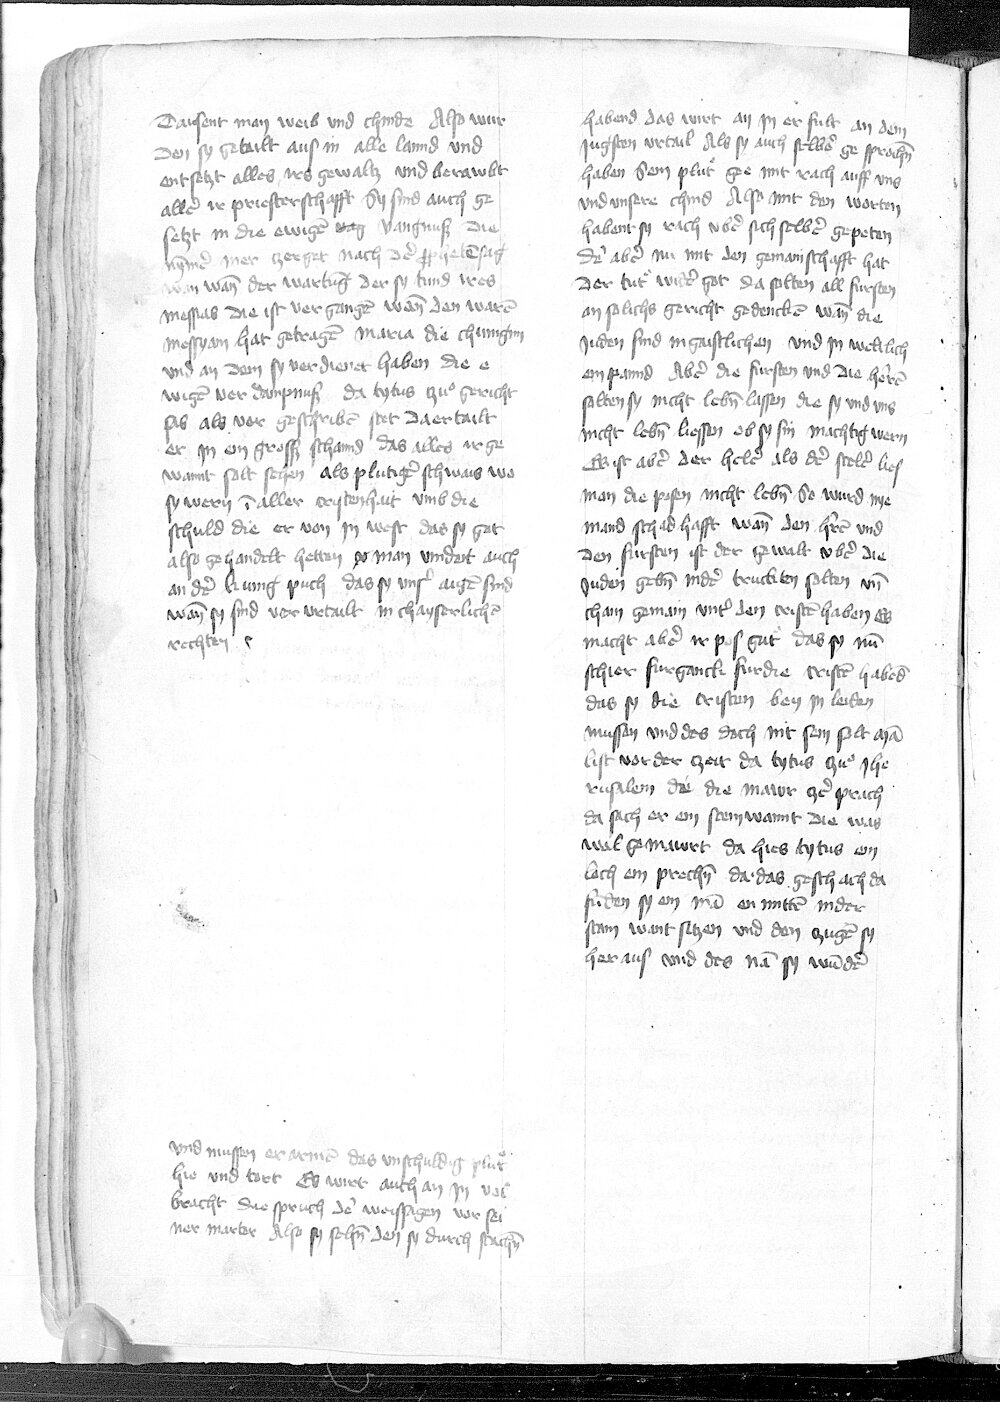 Tausent man weib vnd chinde Also wur
den sy getailt aus in alle lannd vnd
entsetzt alles irs gewaltz vnd beraubt
aller ir priesterschafft Sy sind auch ge
setzt in die ewigē vangnuss Die
nÿmē mer zerget nach der prophetē sag
wan wañ der wartūg der sy tund ires
messias die ist vergangē wañ den warē
messyam hat getragē maria die chuniginn
vnd an dem sy verdienet haben die e
wigē verdampnuss da tytus zuͦ gericht
sas als vor geschribē stet da ertailt
er in ein gross schannd das alles ir ge
wannt solt sehen als plutigē schwais wo
sy wern ī aller cristenhait vmb die
schuld die er von in west das sy got
also gehandelt hetten man vindet auch
an der kunig puch das sy vnsʼ augē sind
wañ sy sind vervrtailt in chayserlichē
rechten
vnd mussen erarnē das vnschuldig plut
hie vnd dort Es wirt auch an in vol
bracht die spruch dē weissagen vor sei
ner marter Also sy sehñ den sy durch stachñ
habend das wirt an in erfult an dem
Jungsten vrtail Als sy auch selbē gesprochñ
haben Sein plut gee mit rach auff vns
vnd vnsere chind Also mit den worten
habent sy rach vbē sich selbē gepeten
dē abē nu mit den gemainschafft hat
der tut widē got da solten all fursten
an solichs gericht gedenckē wañ die
Juden sind in gaistlichen vnd in weltlich
em pannd Abē die fursten vnd die herrē
solten sy nicht lebñ lassen die sy vnd vns
nicht lebñ liessen ob sy sin machtig wern
Es ist abē der helē als dē stelē lies
man die posen nicht lebñ So wurd nie
mand schadhafft wañ den hrē vnd
den fursten ist der gewalt vbē die
Juden gebñ in dē truckten solten vñ
chain gemain mitʼ den cristē haben Es
macht abē ir pos gut das sy nū
schier furganck fur die cristē habēd
das sy die cristen bey in leiden
mussen vnd des doch nit sein solt Mā
list vor der zeit da tytus zuͦ Jhe
rusalem die mawr zēprach
da sach er ein stainwannt die was
wol gemawrt da hies tytus ein
loch ein prechñ da das geschach da
fūden sy ein mā en mittē in der
stain want sitzen vnd den zugē sy
heraus vnd des nā sy wūdē